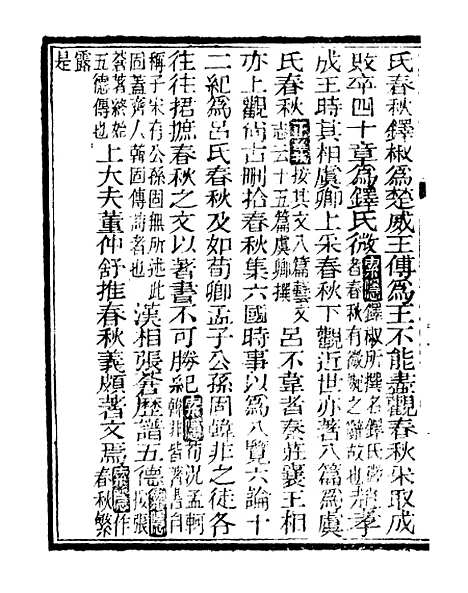 氏春秋鐸椒爲楚威王傅爲王不能盡觀春秋采取成
敗卒四十章爲鐸氏微索隱鐸椒所撰名鐸氏微者春秋有微婉之辭故也趙孝
成王時其相虞卿上采春秋下觀近世亦著八篇爲虞
氏春秋正義按其文八篇藝文志云十五篇虞卿撰呂不韋者秦莊襄王相
亦上觀尚古刪拾春秋集六國時事以爲八覽六論十
二紀爲呂氏春秋及如荀卿孟子公孫固韓非之徒各
往往捃摭春秋之文以著書不可勝紀索隱荀況孟軻韓非皆著書自
稱子宋有公孫固無所述此固蓋齊人韓固傳詩者也漢相張蒼歷譜五德索隱按張
蒼著終始五德傳也上大夫董仲舒推春秋義頗著文焉索隱作春秋繁
露是